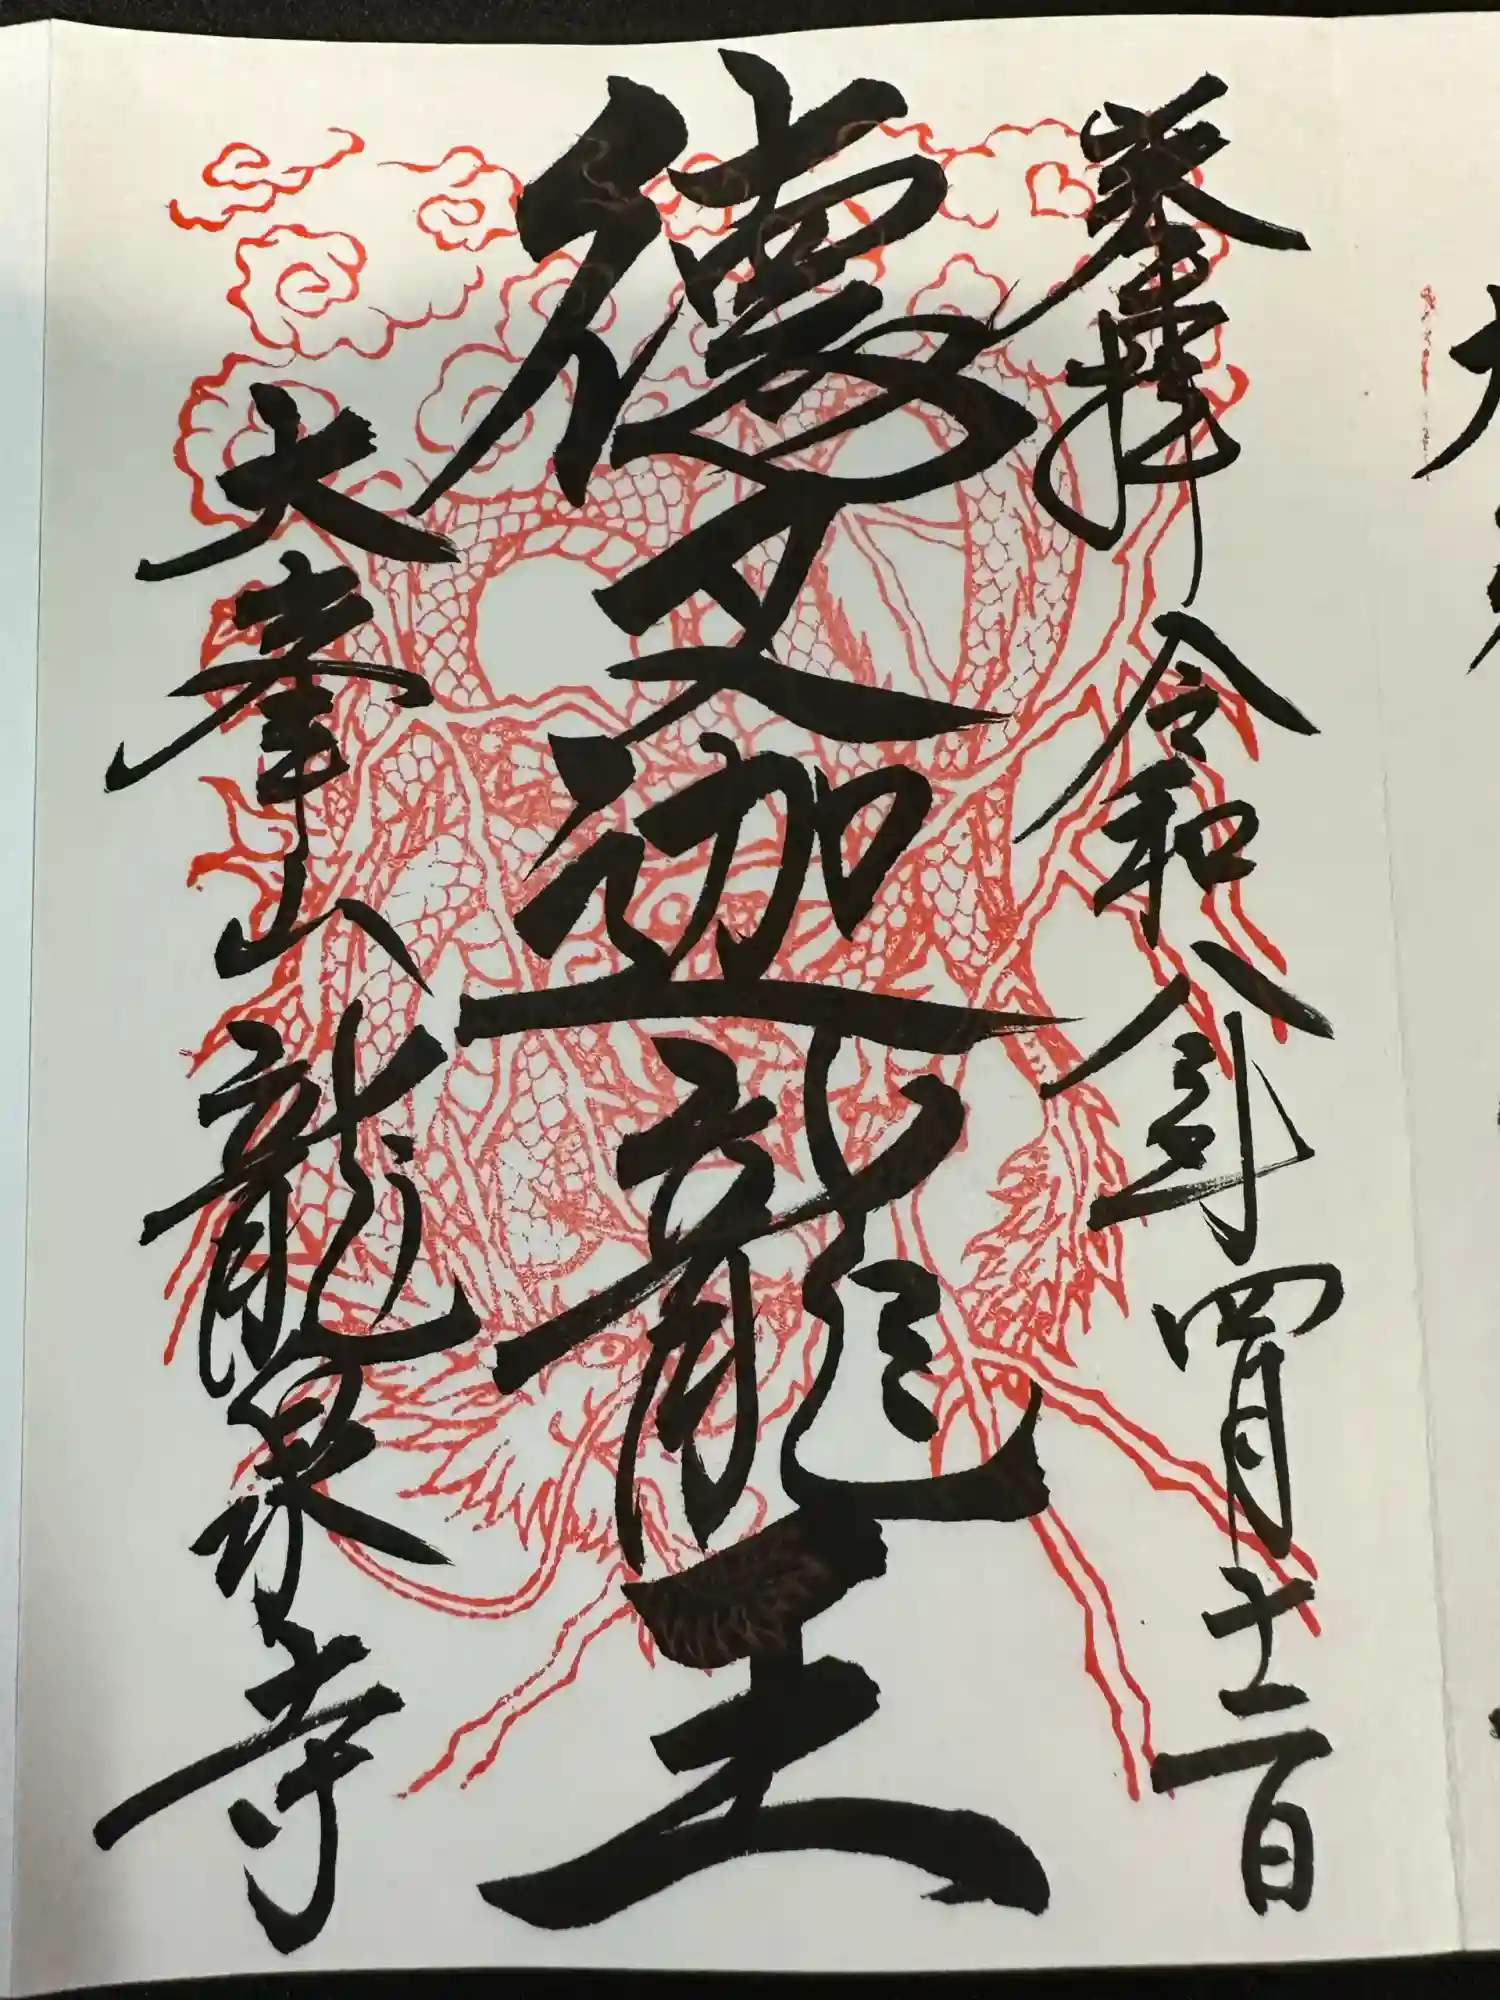 奉拝 令和八年四月十二日
徳叉迦龍王
大峯山 龍泉寺